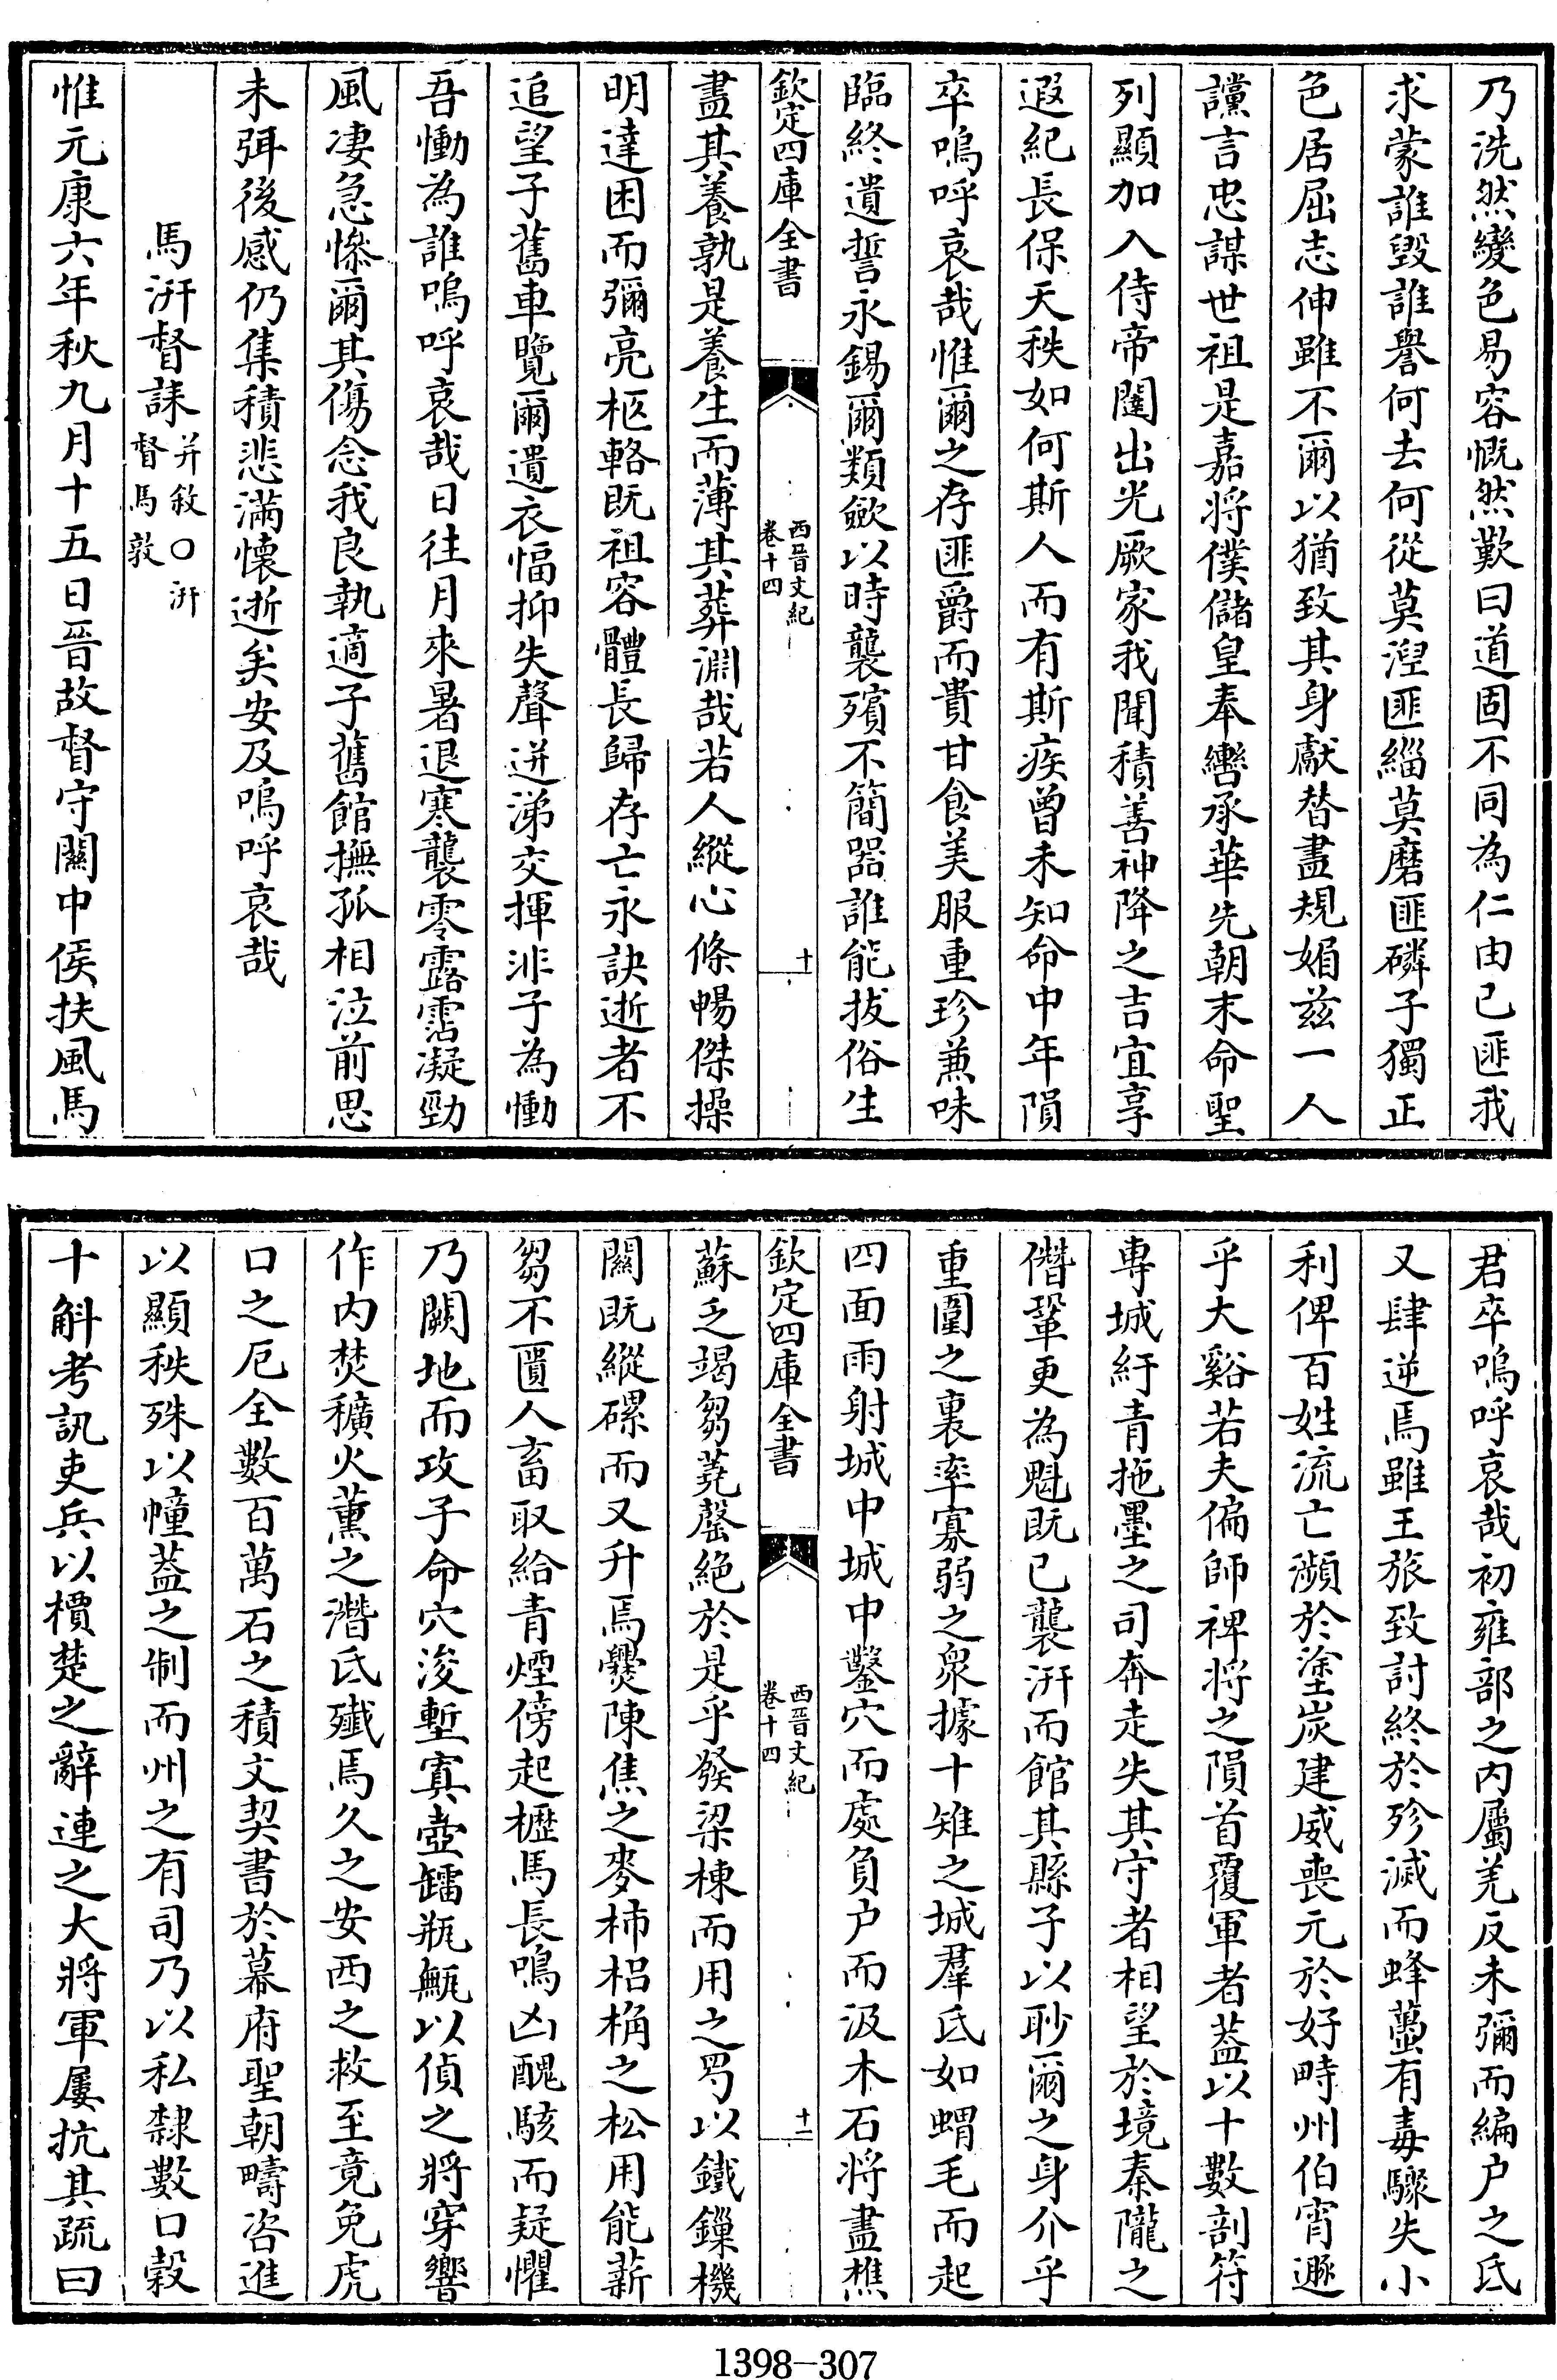 乃洗然變色易容慨然歎曰道固不同為仁由己匪我
求蒙誰毀誰譽何去何從莫涅匪緇莫磨匪磷子獨正
色居屈志伸雖不爾以猶致其身獻替盡規媚兹一人
讜言忠謀世祖是嘉將僕儲皇奉轡承華先朝末命聖
列顯加入侍帝闥出光厥家我聞積善神降之吉宜享
遐紀長保天秩如何斯人而有斯疾曾未知命中年隕
卒嗚呼哀哉惟爾之存匪爵而貴甘食美服重珍兼味
臨終遺誓永錫爾類斂以時襲殯不簡器誰能拔俗生
欽定四庫全書
西晉文紀
卷十四
十
盡其養孰是養生而薄其葬淵哉若人縱心條暢傑操
明達困而彌亮柩輅既祖容體長歸存亡永訣逝者不
追望子舊車覽爾遺衣愊抑失聲迸涕交揮非子為慟
吾慟為誰嗚呼哀哉日往月來暑退寒襲零露霑凝勁
風凄急慘爾其傷念我良執適子舊館撫孤相泣前思
未弭後感仍集積悲滿懷逝矣安及嗚呼哀哉
馬汧督誄并敘○汧督馬敦
惟元康六年秋九月十五日晉故督守關中侯扶風馬
君卒嗚呼哀哉初雍部之内屬羌反未彌而編户之氐
又肆逆焉雖王旅致討終於殄滅而蜂蠆有毒驟失小
利俾百姓流亡瀕於塗炭建威喪元於好畤州伯宵遯
乎大谿若夫偏師裨將之隕首覆軍者蓋以十數剖符
專城紆青拖墨之司奔走失其守者相望於境秦隴之
僭鞏更為魁既已襲汧而館其縣子以眇爾之身介乎
重圍之裏率寡弱之衆據十雉之城羣氐如蝟毛而起
四面雨射城中城中鑿穴而處負户而汲木石將盡樵
欽定四庫全書
西晉文紀
卷十四
十一
蘇乏竭芻蕘罄絶於是乎發梁棟而用之罥以鐵鏁機
關既縱礌而又升焉爨陳焦之麥柿梠桷之松用能薪
芻不匱人畜取給青煙傍起櫪馬長鳴凶醜駭而疑懼
乃闕地而攻子命穴浚塹寘壺鐳瓶甒以偵之將穿響
作内焚穬火薰之潛氐殲焉久之安西之救至竟免虎
口之厄全數百萬石之積文契書於幕府聖朝疇咨進
以顯秩殊以幢蓋之制而州之有司乃以私隸數口穀
十斛考訊吏兵以檟楚之辭連之大將軍屢抗其疏曰
1398-307